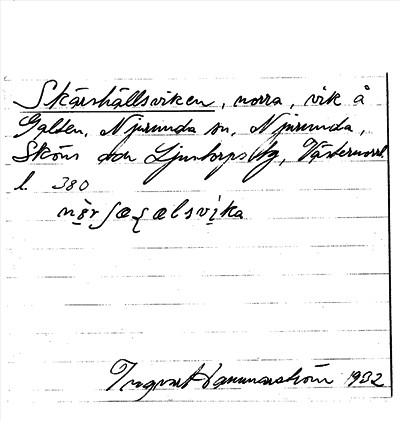 Skärshällsviken, norra, vik å
Galten, Njurunda sn, Njurunda,
Sköns och Ljustorps tg, Västernorrl.
l. 380
Ingvar Hammarström 1932